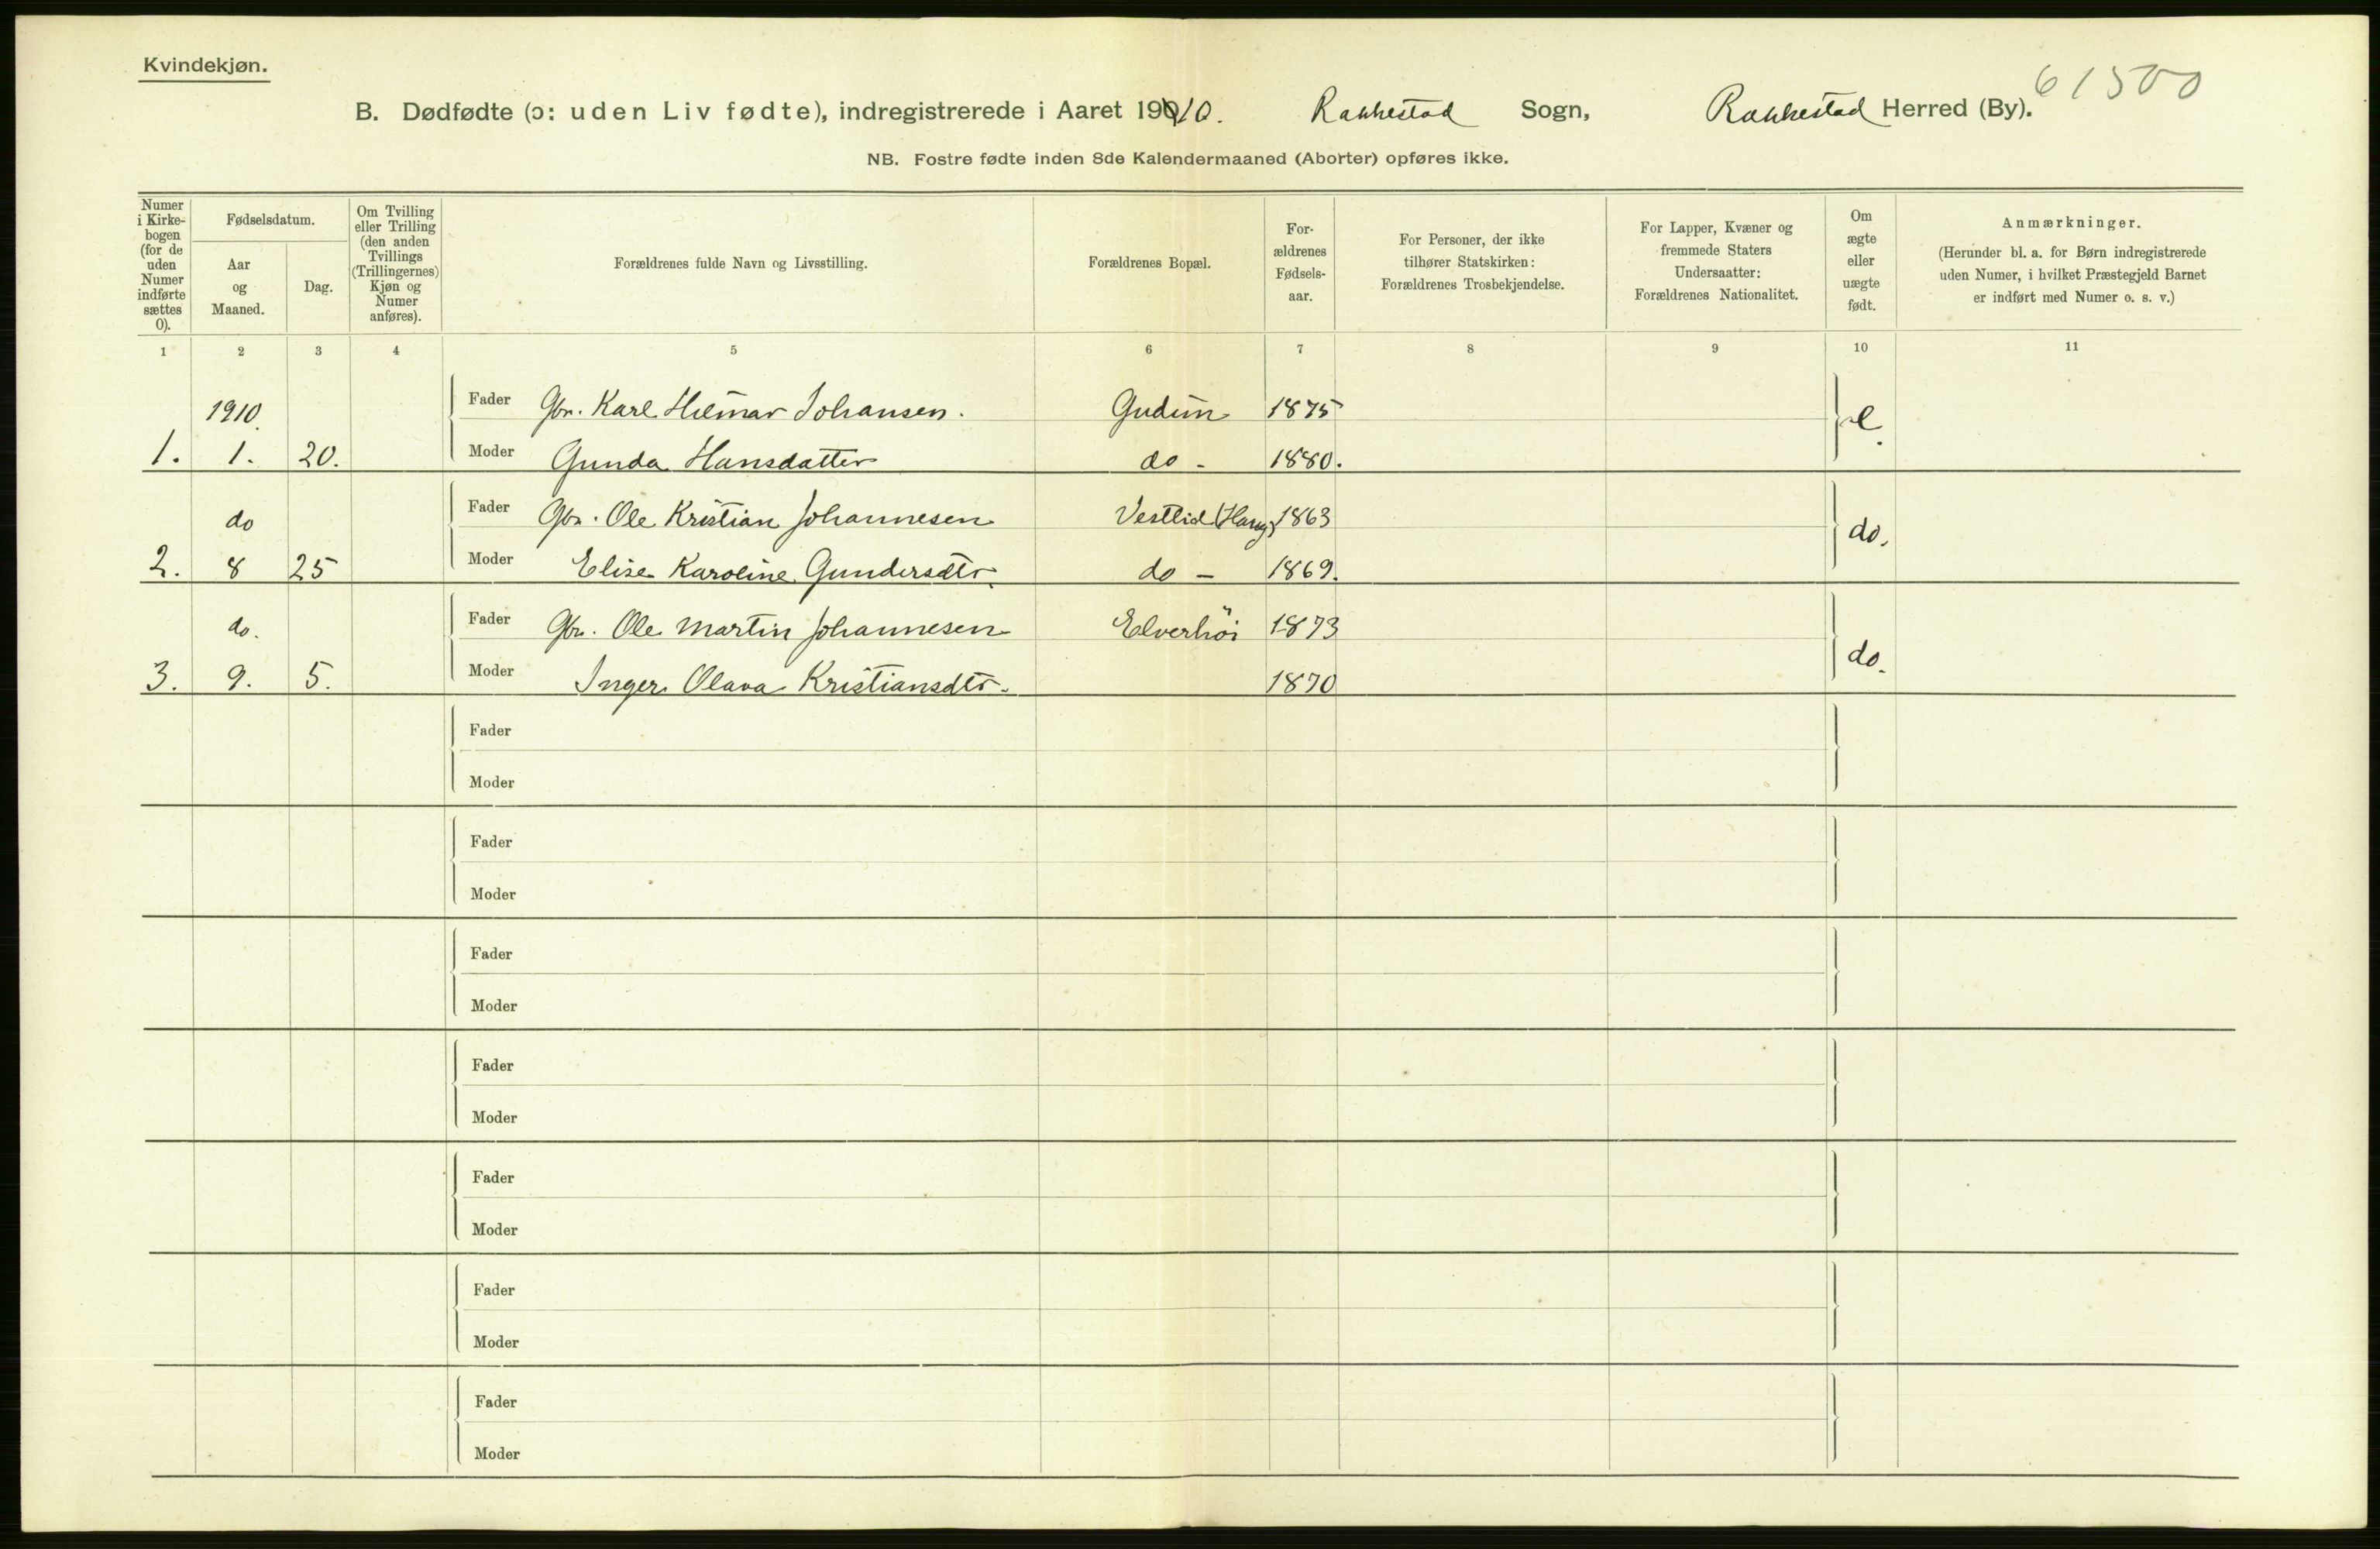 Kvindekjøn.
61500
B. Dødfødte (ɔ: uden Liv fødte), indregistrerede i Aaret 1910. Rakkestad Sogn, Rakkestad Herred (By).
NB. Fostre fødte inden 8de Kalendermaaned (Aborter) opføres ikke.
Numer
i Kirke-
bogen
(for de
uden
Numer
indførte
sættes
0).
Fødselsdatum.
Aar
og
Maaned.
Dag.
Om Tvilling
eller Trilling
(den anden
Tvillings
(Trillingernes)
Kjøn og
Numer
anføres).
Forældrenes fulde Navn og Livsstilling.
Forældrenes Bopæl.
For-
ældrenes
Fødsels-
aar.
For Personer, der ikke
tilhører Statskirken:
Forældrenes Trosbekjendelse.
For Lapper, Kvæner og
fremmede Staters
Undersaatter:
Forældrenes Nationalitet.
Om
ægte
eller
uægte
født.
Anmærkninger.
(Herunder bl. a. for Børn indregistrerede
uden Numer, i hvilket Præstegjeld Barnet
er indført med Numer o. s. v.)
1 2 3 4 5 6 7 8 9 10 11
1910. Fader Gbr. Karl Hilmar Johansen. Gudim 1875 e.
1. 1. 20. Moder Gunda Hansdatter do - 1880.
do Fader Gbr. Ole Kristian Johannesen Vestlid (Haug) 1863 do.
2. 8 25 Moder Elise Karoline Gundersdtr. do - 1869.
do. Fader Gbr. Ole Martin Johannesen Elverhöi 1873 do.
3. 9. 5. Moder Inger Olava Kristiansdtr. 1870
Fader
Moder
Fader
Moder
Fader
Moder
Fader
Moder
Fader
Moder
Fader
Moder
Fader
Moder